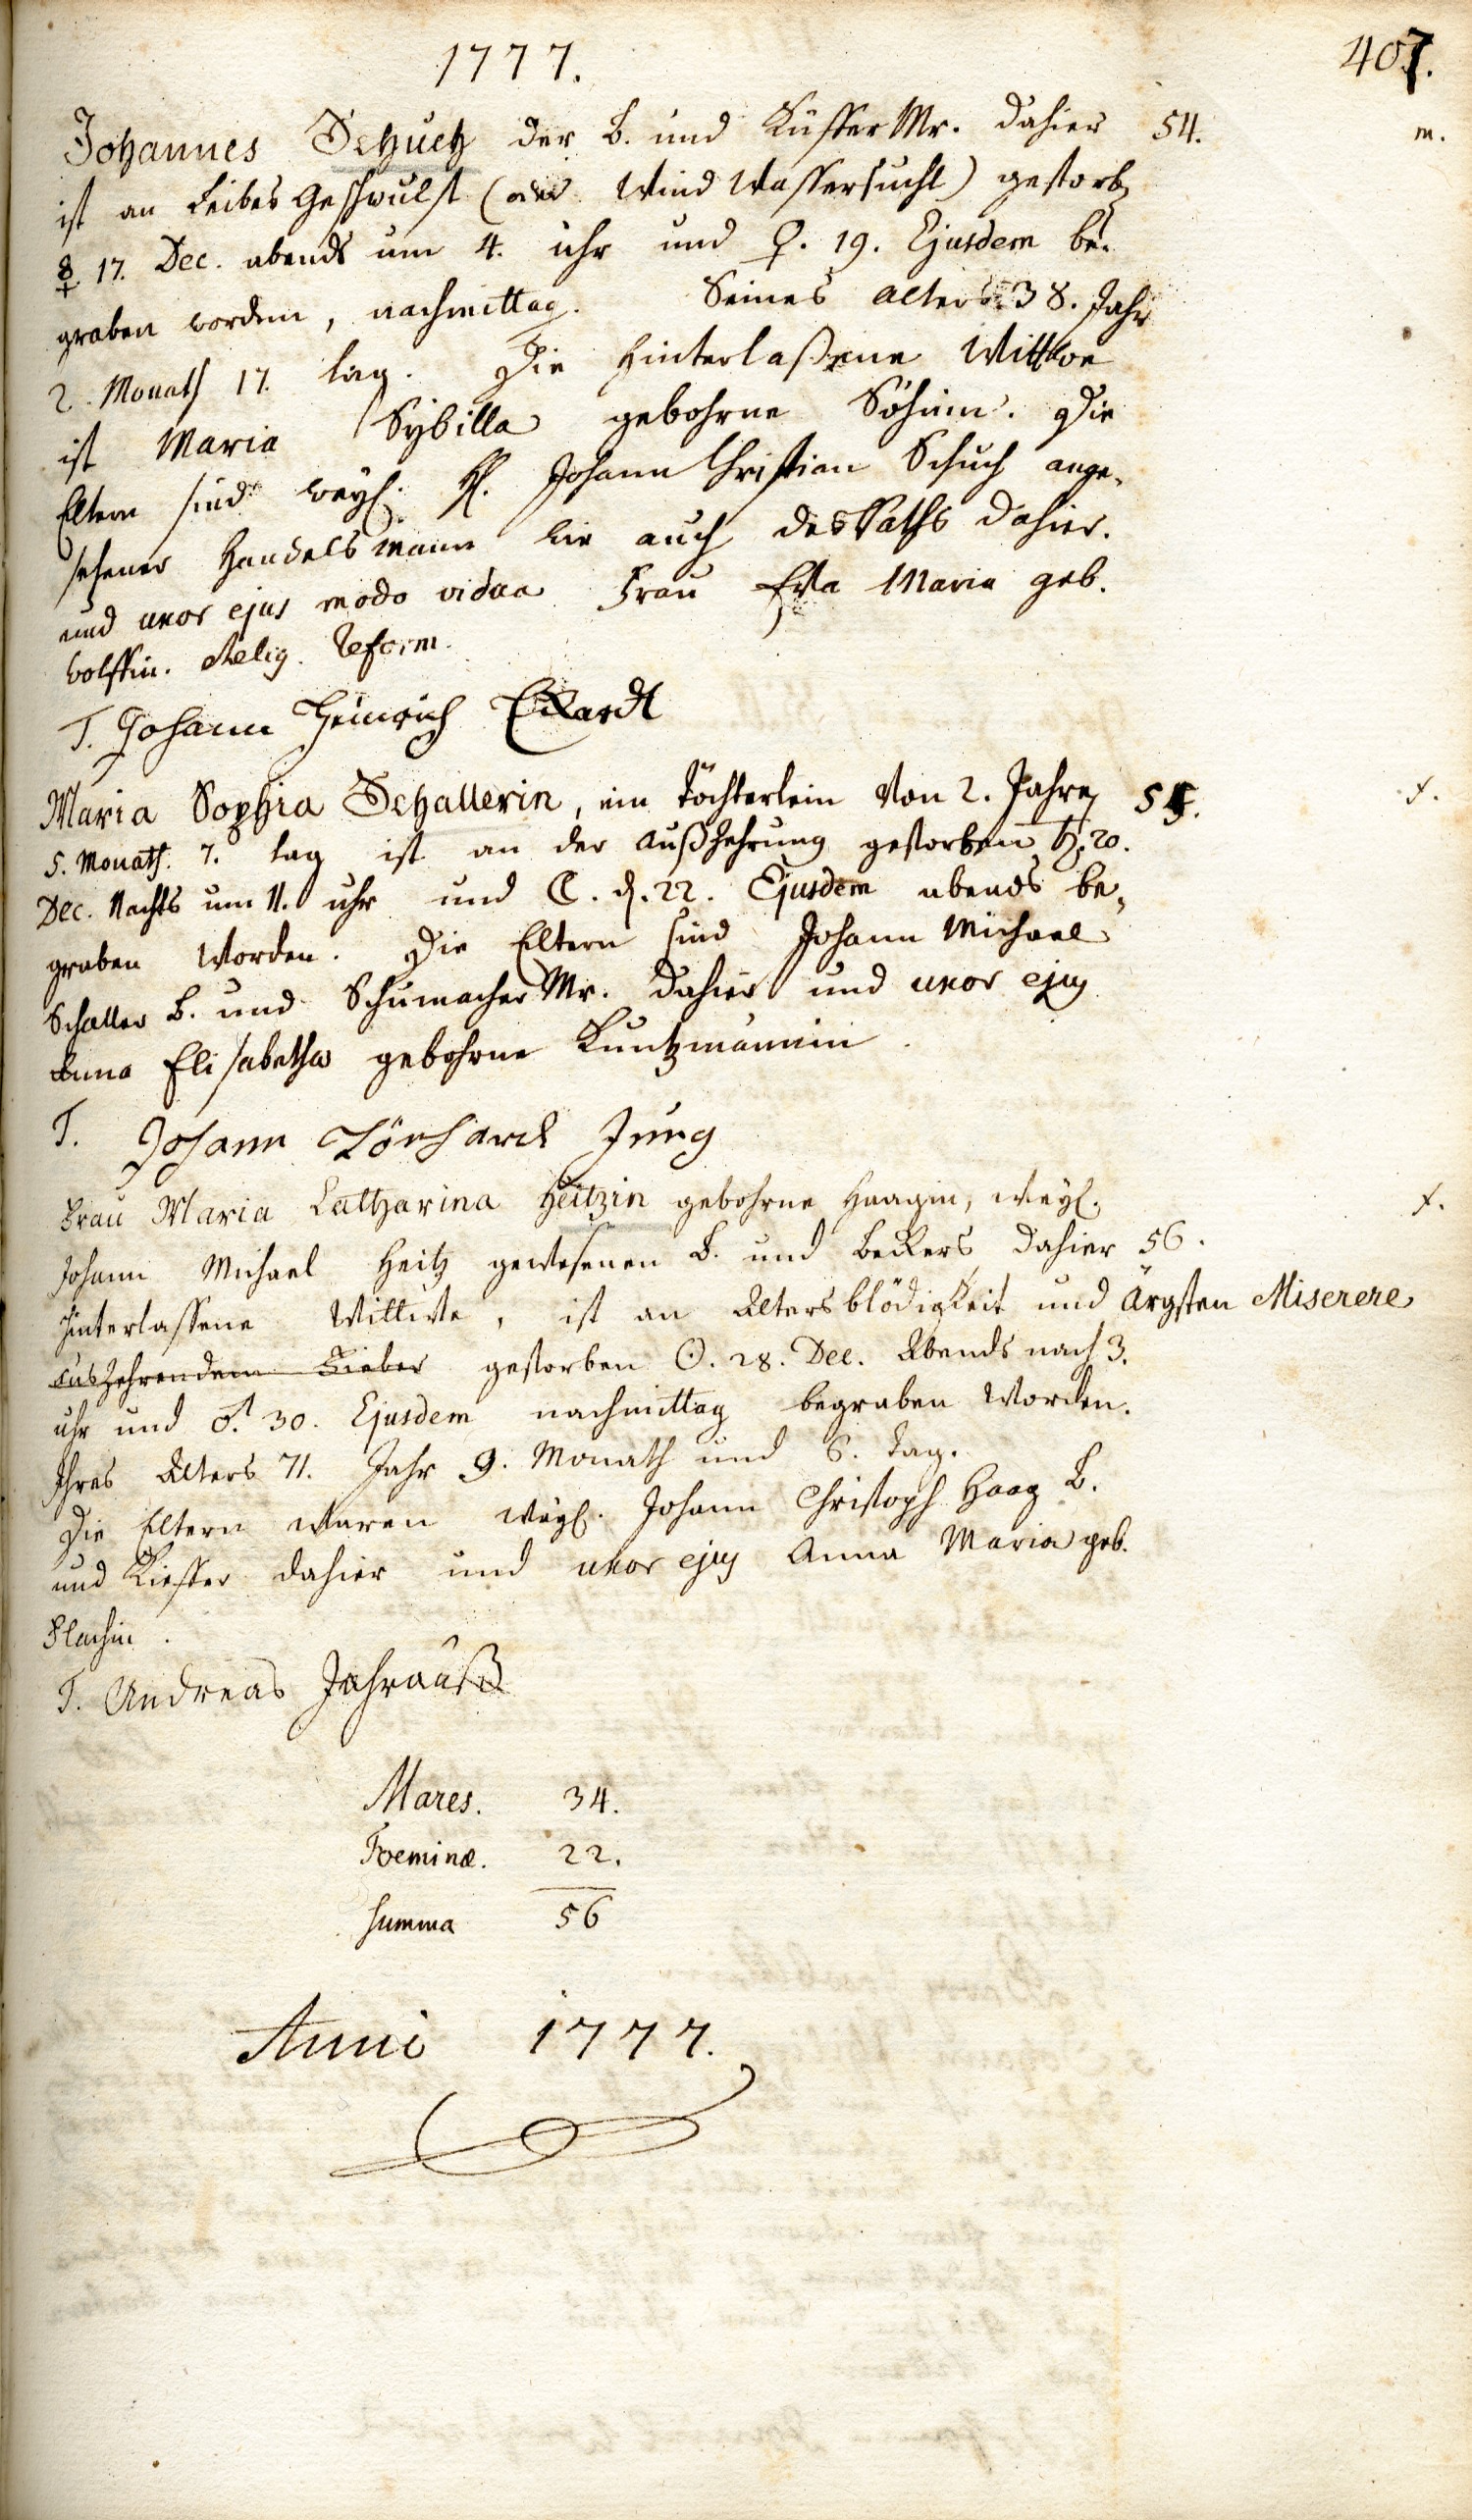 1777.
407.
Johannes Schuch der B. und Küffer Mr. dahier 54. m.
ist an Leibes Geschwulst (oder Wind Wassersucht) gestorbē
☿ 17. Dec. abends um 4. uhr und ♀. 19. Ejusdem be-
graben worden, nachmittag. Seines Alters 38. Jahr
2. Monath 17. tag. Die Hinterlaßene Wittwe
ist Maria Sybilla gebohrne Söhnin. Die
Eltern sind weyl. H. Johann Christian Schuch ange-
sehener Handelsmann wie auch des Raths dahier.
und uxor ejus modo vidua Frau Eva Maria geb.
Wolffin. Relig. Reform.
T. Johann Heinrich Eckardt
Maria Sophia Schallerin, ein Töchterlein von 2. Jahrē 55. f.
5. Monath. 7. tag ist an der Außzehrung gestorben ♄. 20.
Dec. Nachts um 11. uhr und ☾. d. 22. Ejusdem abends be-
graben worden. Die Eltern sind Johann Michael
Schaller B. und Schumacher Mr. dahier und uxor ejus
Anna Elisabetha gebohrne Kuntzmännin.
T. Johann Lönhard Jung
Frau Maria Catharina Heitzin gebohrne Haagin, weyl. f.
Johann Michael Heitz gewesenen B. und Beckers dahier 56.
Hinterlassene Wittwe, ist an Altersblödigkeit und Ärgsten Miserere
auszehrendem Fieber gestorben ☉. 28. Dec. Abends nach 3.
uhr und ♂. 30. Ejusdem nachmittag begraben worden.
Ihres Alters 71. Jahr 9. Monath und 6. Tag.
Die Eltern waren weyl. Johann Christoph Haag B.
und Kieffer dahier und uxor ejus Anna Maria geb.
Flachin.
T. Andreas Jahrauß
Mares. 34.
Foeminæ. 22.
Summa 56
Anni 1777.